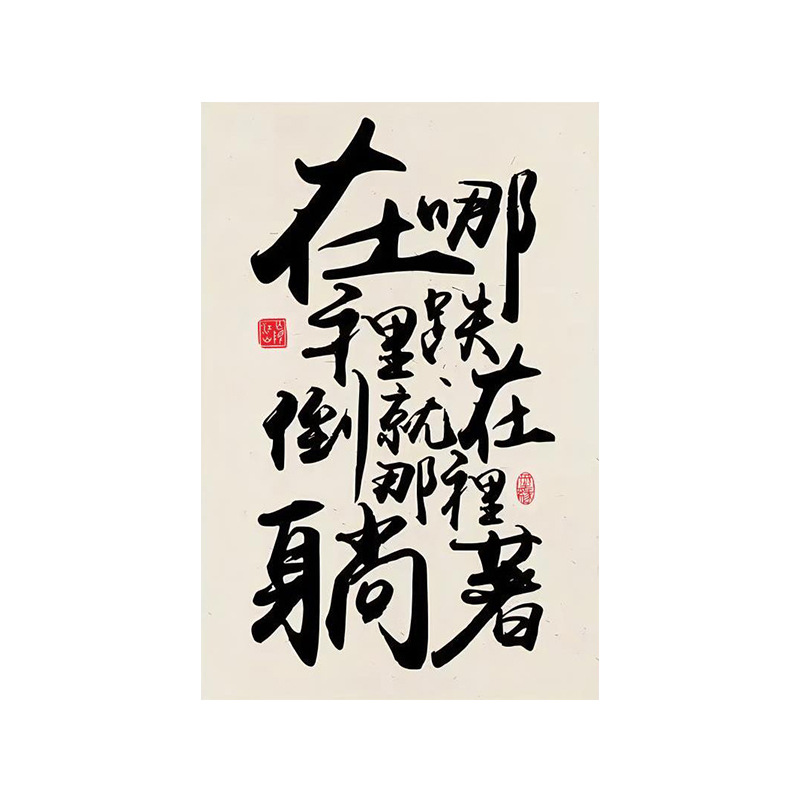 在哪
裡跌
倒就在
那裡
躺著